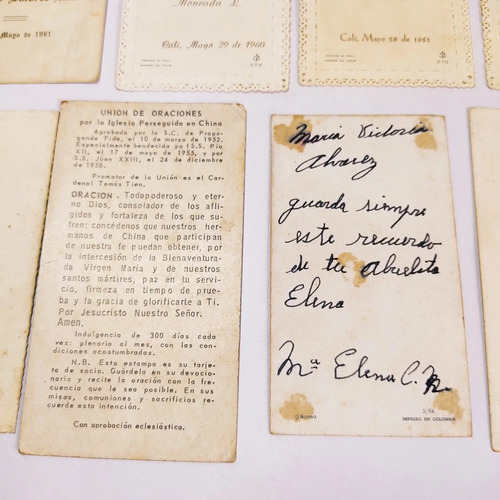 Mayo de 1961
Moncada L.
Cali, Mayo 29 de 1960
Cali, Mayo 28 de 1961
UNION DE ORACIONES
por la Iglesia Perseguida en China
Aprobada por la S.C. de Propa-
ganda Fide, el 10 de marzo de 1952.
Especialmente bendecida por (S.S. Pío
XII, el 17 de mayo de 1955, y por
S.S. Juan XXIII, el 24 de diciembre
de 1958.
Promotor de la Unión es el Car-
denal Tomás Tien.
ORACION - Todopoderoso y eter-
no Dios, consolador de los afli-
gidos y fortaleza de los que su-
fren: concédenos que nuestros her-
manos de China que participan
de nuestra fe puedan obtener, por
la intercesión de la Bienaventura-
da Virgen María y de nuestros
santos mártires, paz en tu servi-
cio, firmeza en tiempo de prue-
ba y la gracia de glorificarte a Ti.
Por Jesucristo Nuestro Señor.
Amen.
Indulgencia de 300 días cada
vez: plenaria al mes, con las con-
diciones acostumbradas.
N.B. Esta estampa es su tarje-
ta de socio. Guárdela en su devocio-
nario y recite la oración con la fre-
cuencia que le sea posible. En sus
misas, comuniones y sacrificios re-
cuerde esta intención.
Con aprobación eclesiástica.
Maria Victoria
Alvarez
guarda siempre
este recuerdo
de tu abuelita
Elena
Mª Elena C.
Norma
5/94
IMPRESO EN COLOMBIA